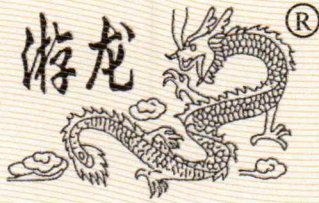 游龙
®